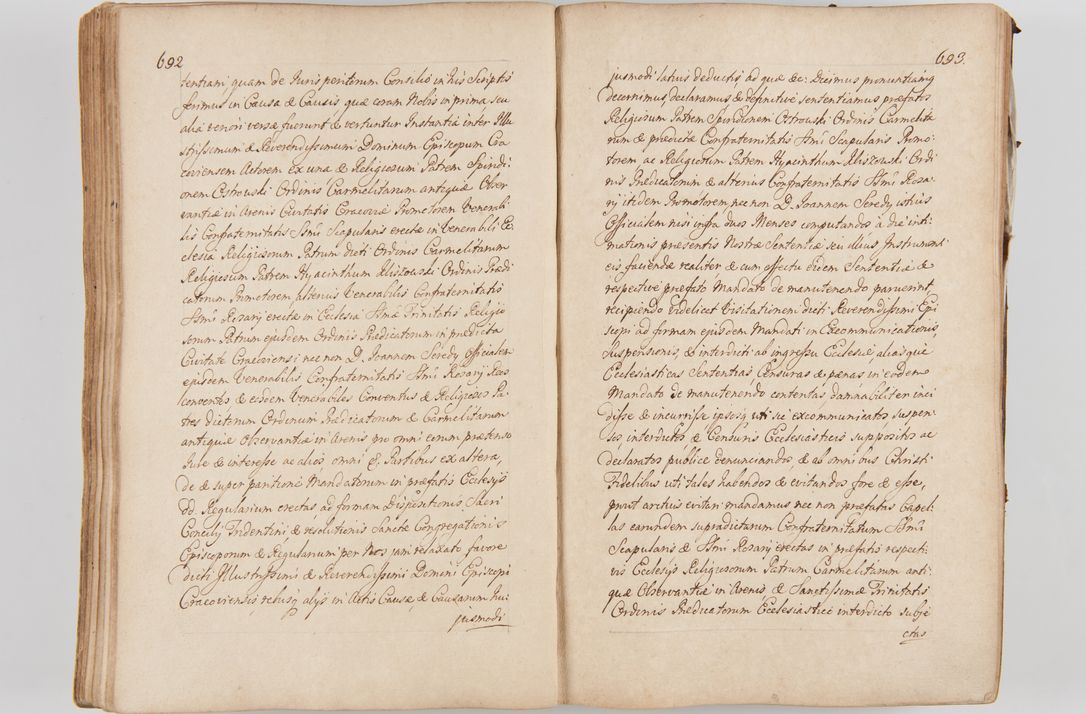 692
tentiam, quam de Juris peritorum Consilio in his Scriptis
ferimus in Causa & Causis quæ coram Nobis in prima, seu
alia veriori versæ fuerunt & vertuntur Instantia inter Illu
strissimum & Reverendissimum Dominum Episcopum Cra
coviensem Actorem ex una & Religiosum Patrem Spiridi
onem Ostrouski Ordinis Carmelitarum antiquæ Obser
vantiæ in Arenis Civitatis Cracoviæ Promotorem Venerabi
lis Confraternitatis SSmi Scapularis erectæ in Venerabili Ec
clesia Religiosorum Patrum dicti Ordinis Carmelitarum
Religiosum Patrem Hyacinthum Kliszouski Ordinis Prædi
catorum Promotorem alterius Venerabilis Confraternitatis
SSmi Rosarij erectæ in Ecclesia SSmæ Trinitatis Religio
sorum Patrum ejusdem Ordinis Prædicatorum in prædicta
Civitate Cracoviensi nec non D. Joannem Seredy Officialem
ejusdem Venerabilis Confraternitatis SSmi Rosarij Reos
conventos & eosdem Venerabiles Conventus & Religiosos Pa
tres dictorum Ordinum Prædicatorum & Carmelitarum
antiquæ Observantiæ in Arenis pro omni eorum prætenso
Jure & interesse ac alios omni & Partibus ex altera,
de & super paritione Mandatorum in præfatis Ecclesijs
dd. Regularium erectas, ad formam Dispositionis Sacri
Concilij Tridentini, & resolutionis Sanctæ Congregationis
Episcoporum & Regularium per Nos jam relaxato favore
dicti Illustrissimi & Reverendissimi Domini Episcopi
Cracoviensis rebusq alijs in Actis Causæ, & Causarum hu:
jusmodi
693.
jusmodi latius deductis ad quæ &c: Dicimus pronuntiamq
decernimus, declaramus & definitivè sententiamus præfatos
Religiosum Patrem Spiridionem Ostrouski Ordinis Carmelita
rum & prædictæ Confraternitatis SSmi Scapularis Promo:
torem ac Religiosum Patrem Hyacinthum Kliszouski Ordi
nis Prædicatorum & alterius Confraternitatis SSmi Rosa:
rij itidem Promotorem nec non D. Joannem Seredy istius
Officialem nisi infra duos Menses computandos à die inti
mationis præsentis Nostræ Sententiæ seu illius Instrumenti
eis faciendæ realiter & cum effectu eidem Sententiæ &
respectivè præfato Mandato de manutenendo paruerint,
recipiendo videlicet Visitationem dicti Reverendissimi Epi
scopi ad formam ejusdem Mandati in Excommunicationis,
suspensionis, & interdicti ab ingressu Ecclesiæ, aliasque
Ecclesiasticas Sententias, Censuras & pænas in eodem
Mandato de manutenendo contentas, damnabiliter inci
disse & incurrisse ipsosq uti sic excommunicatos, suspen
sos, interdictos & Censuris Ecclesiasticis suppositos ac
declaratos publicè denunciandos, & ab omnibus Christi
Fidelibus uti tales habendos & evitandos fore & esse,
prout arctius evitari mandamus nec non præfatas Capel
las earundem supradictarum Confraternitatum SSmi
Scapularis & SSmi Rosarij erectas in præfatis respecti:
vis Ecclesijs Religiosorum Patrum Carmelitarum anti
quæ Observantiæ in Arenis, & Sanctissimæ Trinitatis
Ordinis Prædicatorum Ecclesiastico interdicto subje
ctas